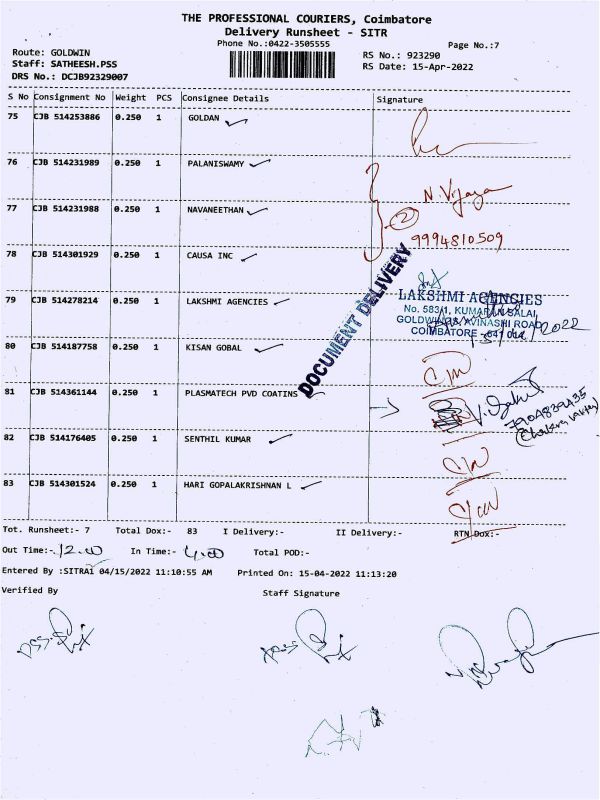 THE PROFESSIONAL COURIERS, Coimbatore
Delivery Runsheet - SITR
Phone No.:0422-3505555
Page No.:7
Route: GOLDWIN
RS No.: 923290
Staff: SATHEESH.PSS
RS Date: 15-Apr-2022
DRS No.: DCJB92329007
S No Consignment No Weight PCS Consignee Details Signature
75 CJB 514253886 0.250 1 GOLDAN
76 CJB 514231989 0.250 1 PALANISWAMY
N. Vijaya
2
77 CJB 514231988 0.250 1 NAVANEETHAN
9994810509
78 CJB 514301929 0.250 1 CAUSA INC
DOCUMENT DELIVERY
79 CJB 514278214 0.250 1 LAKSHMI AGENCIES
LAKSHMI AGENCIES
No. 583/1, KUMARAN SALAI,
GOLDWINGS, AVINASHI ROAD
COIMBATORE - 641 014
80 CJB 514187758 0.250 1 KISAN GOBAL
81 CJB 514361144 0.250 1 PLASMATECH PVD COATINS
7904839435
82 CJB 514176405 0.250 1 SENTHIL KUMAR
83 CJB 514301524 0.250 1 HARI GOPALAKRISHNAN L
Tot. Runsheet:- 7 Total Dox:- 83 I Delivery:- II Delivery:- RTN Dox:-
Out Time:- 12.00 In Time:- 4.00 Total POD:-
Entered By :SITRA1 04/15/2022 11:10:55 AM Printed On: 15-04-2022 11:13:20
Verified By Staff Signature